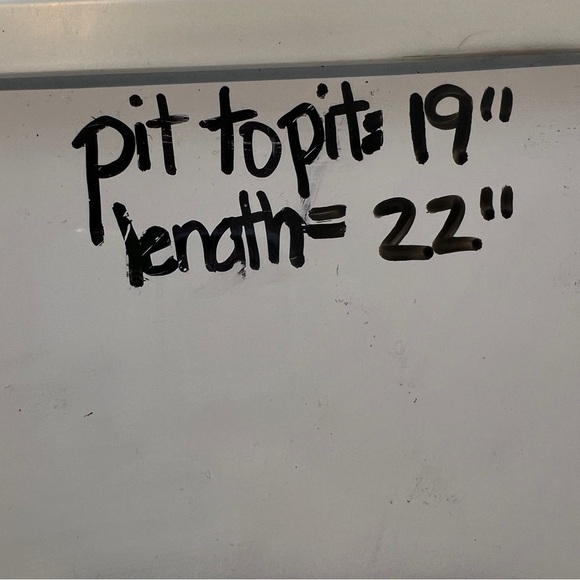 pit to pit= 19"
length= 22"